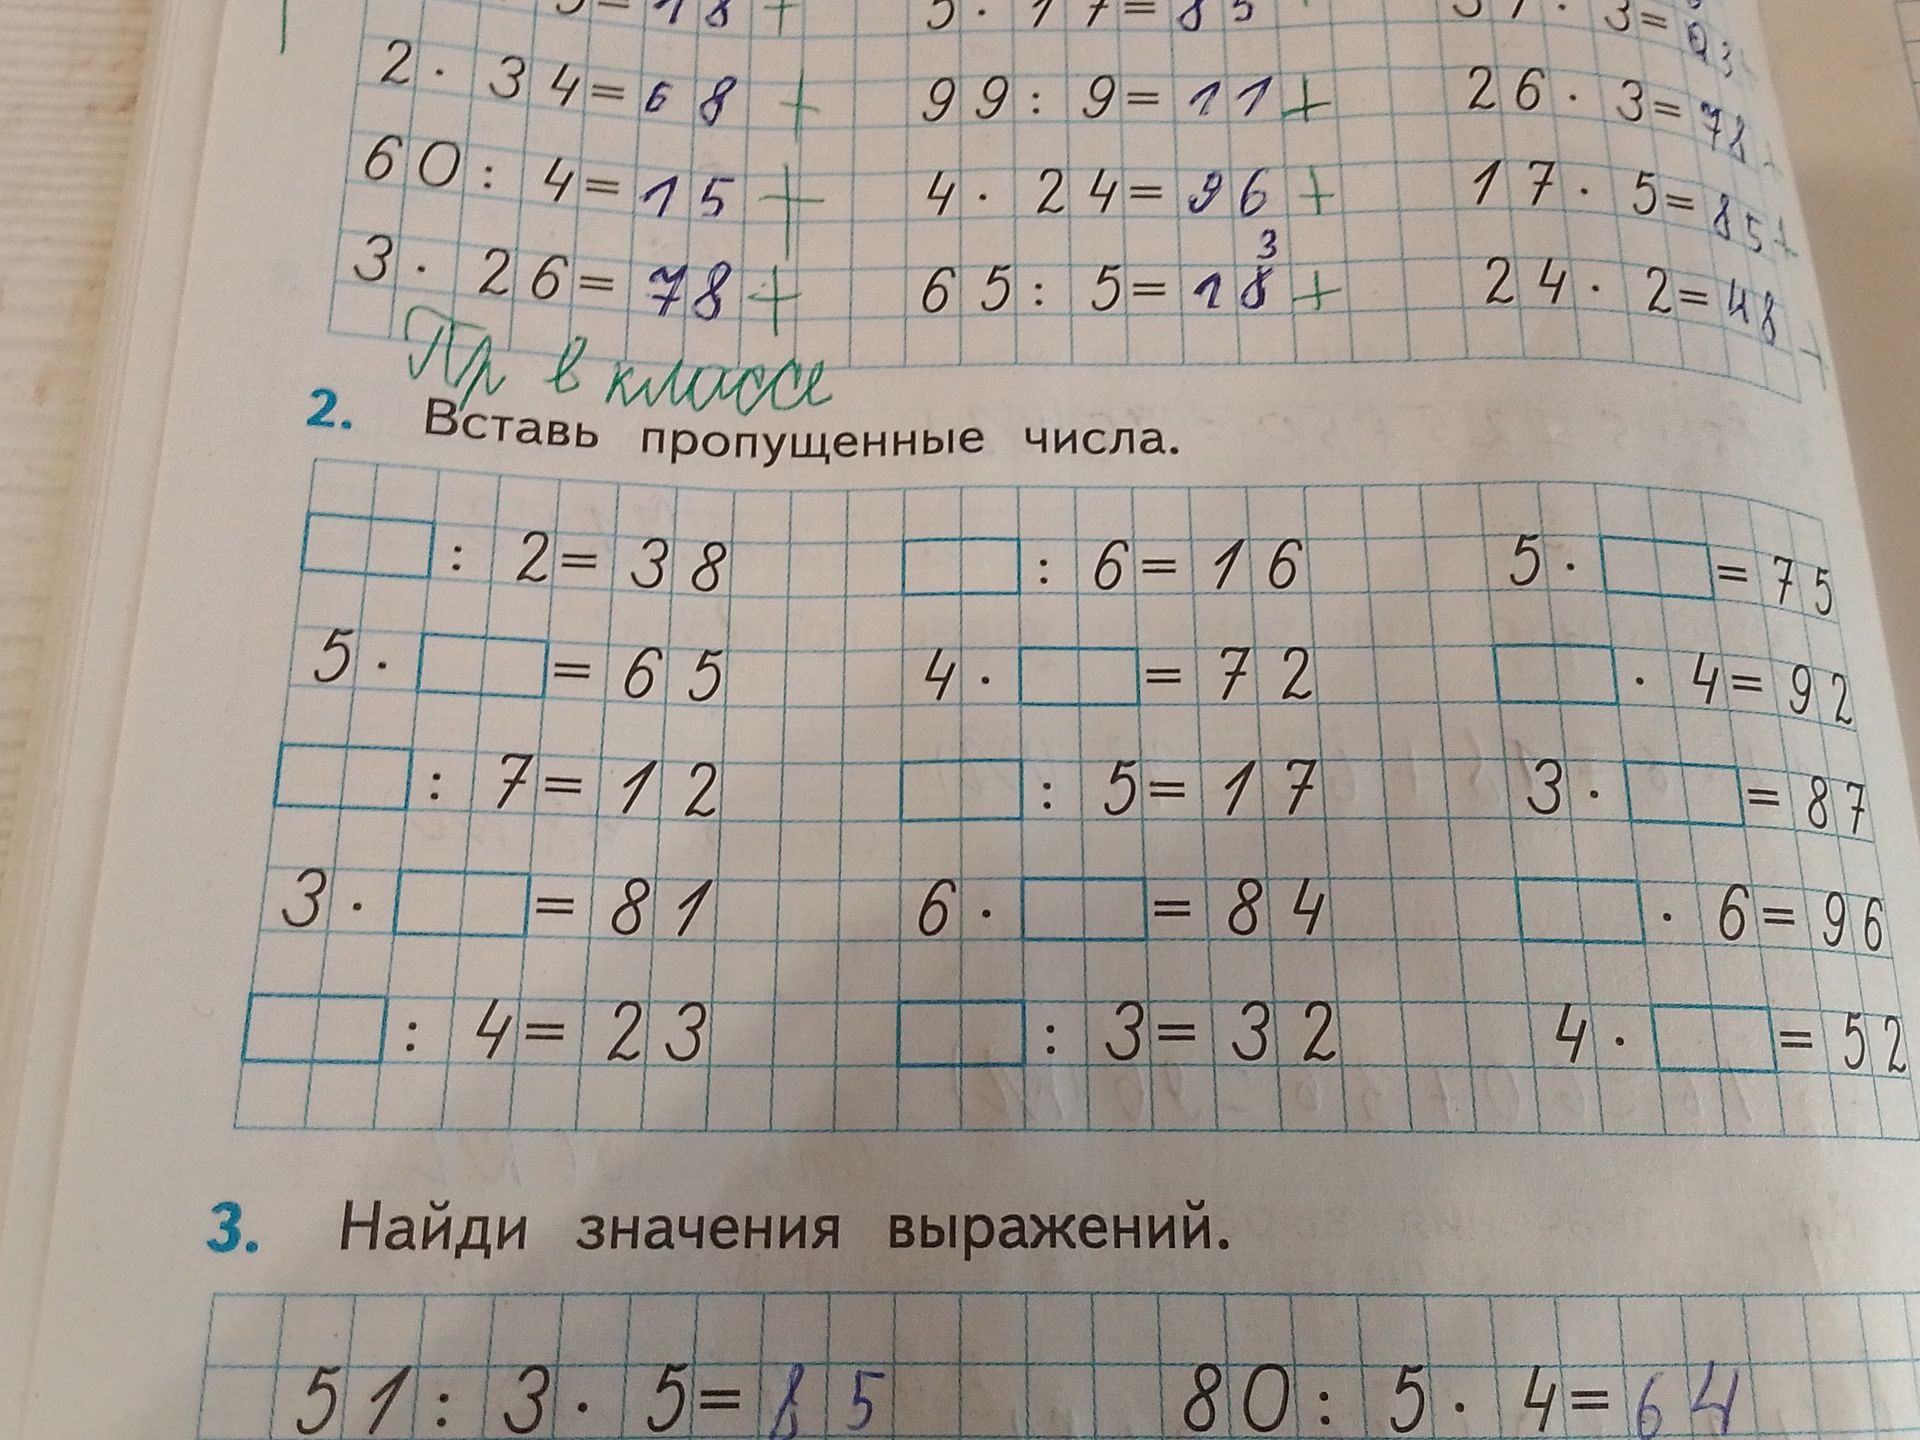 = 18 + 5 · 17 = 85 3 =
2 · 34 = 68 + 99 : 9 = 11 + 26 · 3 = 78
60 : 4 = 15 + 4 · 24 = 96 + 17 · 5 = 85 +
3 · 26 = 78 + 65 : 5 = 13 + 24 · 2 = 48 +
Пр в классе
2. Вставь пропущенные числа.
: 2 = 38 : 6 = 16 5 · = 75
5 · = 65 4 · = 72 · 4 = 92
: 7 = 12 : 5 = 17 3 · = 87
3 · = 81 6 · = 84 · 6 = 96
: 4 = 23 : 3 = 32 4 · = 52
3. Найди значения выражений.
51 : 3 · 5 = 85 80 : 5 · 4 = 64